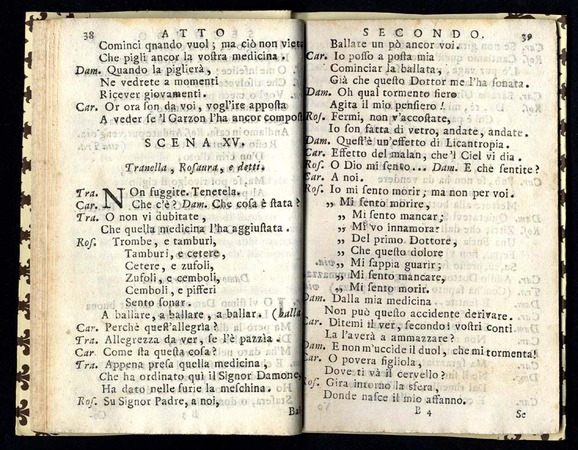 38 ATTO
Cominci qnando vuol; ma ciò non vieta
Che pigli ancor la vostra medicina.
Dam. Quando la piglierà,
Ne vedrete a momenti
Ricever giovamenti.
Car. Or ora son da voi, vogl'ire apposta
A veder se 'l Garzon l'ha ancor compost
SCENA XV.
Tranella, Rosaura, e detti.
Tra. NOn fuggite. Tenetela.
Car. Che c'è? Dam. Che cosa è stata?
Tra. O non vi dubitate,
Che quella medicina l'ha aggiustata.
Ros. Trombe, e tamburi,
Tamburi, e cetere,
Cetere, e zufoli,
Zufoli, e cemboli,
Cemboli, e pifferi
Sento sonar.
A ballare, a ballare, a ballar. (balla
Car. Perchè quest'allegria?
Tra. Allegrezza da ver, se l'è pazzia.
Car. Come sta questa cosa?
Tra. Appena presa quella medicina,
Che ha ordinato quì il Signor Damone,
Ha dato nelle furie la meschina.
Ros. Su Signor Padre, a noi,
Bal
SECONDO. 39
Ballate un pò ancor voi.
Car. Io posso a posta mia
Cominciar la ballata,
Già che questo Dottor me l'ha sonata.
Dam. Oh qual tormento fiero
Agita il mio pensiero!
Ros. Fermi, non v'accostate,
Io son fatta di vetro, andate, andate.
Dam. Quest'è un'effetto di Licantropia.
Car. Effetto del malan, che'l Ciel vi dia.
Ros. O Dio mi sento... Dam. E chè sentite?
Car. A noi.
Ros. Io mi sento morir; ma non per voi.
„ Mi sento morire,
„ Mi sento mancar;
„ Mi vò innamora?
„ Del primo Dottore,
„ Che questo dolore
„ Mi sappia guarir;
„ Mi sento mancare,
„ Mi sento morir.
Dam. Dalla mia medicina
Non può questo accidente derivare.
Car. Ditemi il ver, secondo i vostri conti
La l'averà a ammazzare?
Dam. E non m'uccide il duol, che mi tormenta!
Car. O povera figliola,
Dove ti và il cervello?
Ros. Gira intorno la sfera,
Donde nasce il mio affanno.
B 4 Se